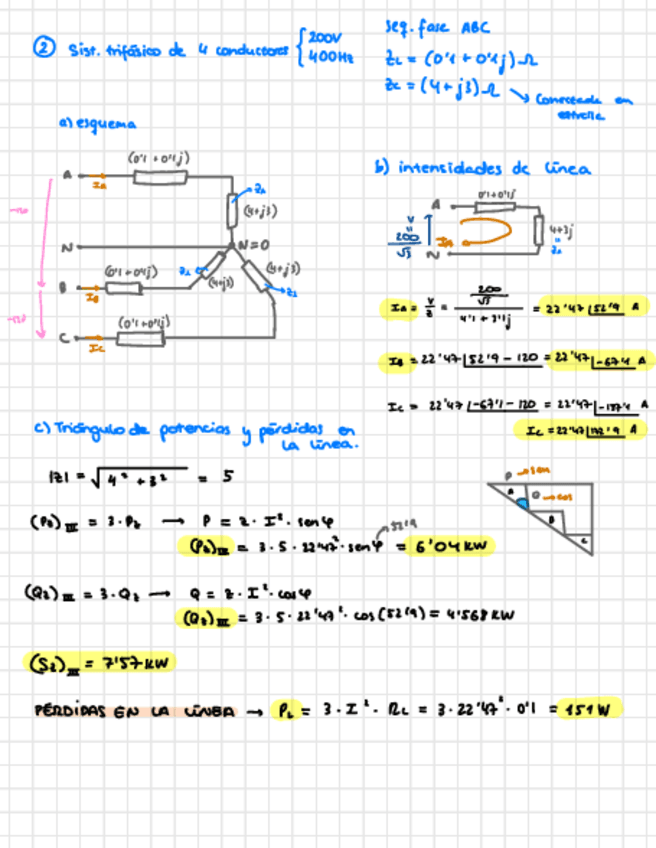 2 Sist. trifásico de 4 conductores { 200V
400Hz
seq. fase ABC
ZL = (0'1 + 0'1j) Ω
Zc = (4+j3) Ω → Conectada en
estrella
a) esquema
A
IA
(0'1 + 0'1j)
(4+j3)
N
N=0
-120
B
IB
(0'1 + 0'1j)
(4+j3)
(4+j3)
-120
C
IC
(0'1 + 0'1j)
b) intensidades de línea
A
0'1 + 0'1j
V
=
200
√3
IA
4+3j
N
IA = V/Z = 200/√3 / 4'1 + 3'1j = 22'47 |52'9 A
IB = 22'47 |52'9 - 120 = 22'47 |-67'1 A
IC = 22'47 |-67'1 - 120 = 22'47 |-187'1 A
IC = 22'47 |172'9 A
c) Triángulo de potencias y pérdidas en
la línea.
|Z| = √4² + 3² = 5
P → sen
A
Q → cos
B
C
(P2)III = 3 · P2 → P = Z · I² · sen φ
52'9
(P2)III = 3 · 5 · 22'47² · sen φ = 6'04 KW
(Q2)III = 3 · Q2 → Q = Z · I² · cos φ
(Q2)III = 3 · 5 · 22'47² · cos (52'9) = 4'568 KW
(S2)III = 7'57 KW
PÉRDIDAS EN LA LÍNEA → PL = 3 · I² · RL = 3 · 22'47² · 0'1 = 151 W